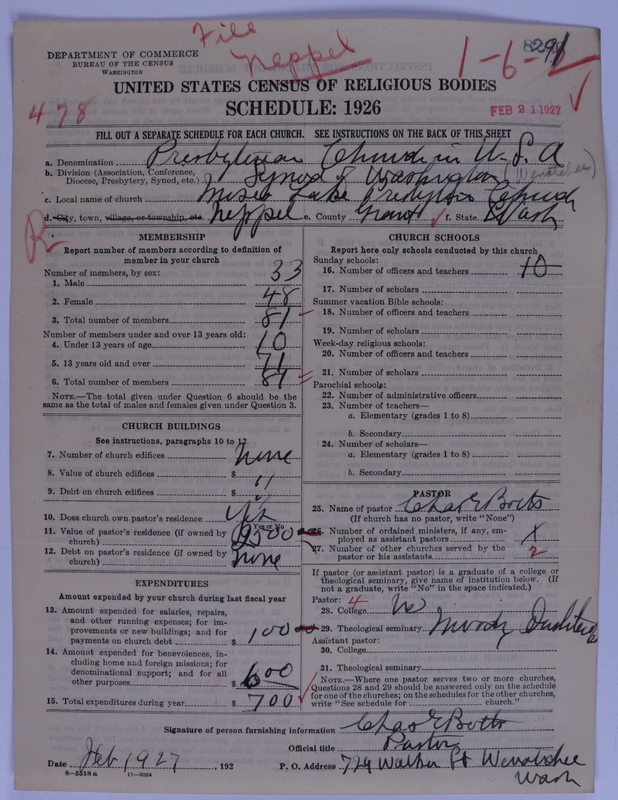 File
Neppel
829
1-6-
DEPARTMENT OF COMMERCE
BUREAU OF THE CENSUS
WASHINGTON
UNITED STATES CENSUS OF RELIGIOUS BODIES
SCHEDULE: 1926
478
FEB 21 1927
FILL OUT A SEPARATE SCHEDULE FOR EACH CHURCH. SEE INSTRUCTIONS ON THE BACK OF THIS SHEET
a. Denomination Presbyterian Church in U.S.A
b. Division (Association, Conference, Diocese, Presbytery, Synod, etc.) Synod of Washington (Wenatchee)
c. Local name of church Moses Lake Presbyterian Church
d. City, town, village, or township, etc. Neppel e. County Grant f. State Wash
R
MEMBERSHIP
Report number of members according to definition of
member in your church
Number of members, by sex:
1. Male 33
2. Female 48
3. Total number of members 81
Number of members under and over 13 years old:
4. Under 13 years of age 10
5. 13 years old and over 71
6. Total number of members 81
NOTE.—The total given under Question 6 should be the
same as the total of males and females given under Question 3.
CHURCH BUILDINGS
See instructions, paragraphs 10 to 12
7. Number of church edifices none
8. Value of church edifices $ "
9. Debt on church edifices $ "
10. Does church own pastor's residence yes
Yes or No
11. Value of pastor's residence (if owned by
church) $
12. Debt on pastor's residence (if owned by
church) $ none
EXPENDITURES
Amount expended by your church during last fiscal year
13. Amount expended for salaries, repairs,
and other running expenses; for im-
provements or new buildings; and for
payments on church debt $ 100
14. Amount expended for benevolences, in-
cluding home and foreign missions; for
denominational support; and for all
other purposes $ 600
15. Total expenditures during year $ 700
CHURCH SCHOOLS
Report here only schools conducted by this church
Sunday schools:
16. Number of officers and teachers 10
17. Number of scholars
Summer vacation Bible schools:
18. Number of officers and teachers
19. Number of scholars
Week-day religious schools:
20. Number of officers and teachers
21. Number of scholars
Parochial schools:
22. Number of administrative officers
23. Number of teachers—
a. Elementary (grades 1 to 8)
b. Secondary
24. Number of scholars—
a. Elementary (grades 1 to 8)
b. Secondary
PASTOR
25. Name of pastor Chas E Botts
(If church has no pastor, write "None")
26. Number of ordained ministers, if any, em-
ployed as assistant pastors
27. Number of other churches served by the
pastor or his assistants 2
If pastor (or assistant pastor) is a graduate of a college or
theological seminary, give name of institution below. (If
not a graduate, write "No" in the space indicated.)
Pastor: 4
28. College No
29. Theological seminary Moody Institute
Assistant pastor:
30. College
31. Theological seminary
NOTE.—Where one pastor serves two or more churches,
Questions 28 and 29 should be answered only on the schedule
for one of the churches; on the schedules for the other churches,
write "See schedule for church."
Signature of person furnishing information Chas E Botts
Official title Pastor
Date Feb 1927, 192 P. O. Address 724 Walker St Wenatchee
Wash
8-5518a 11-9564